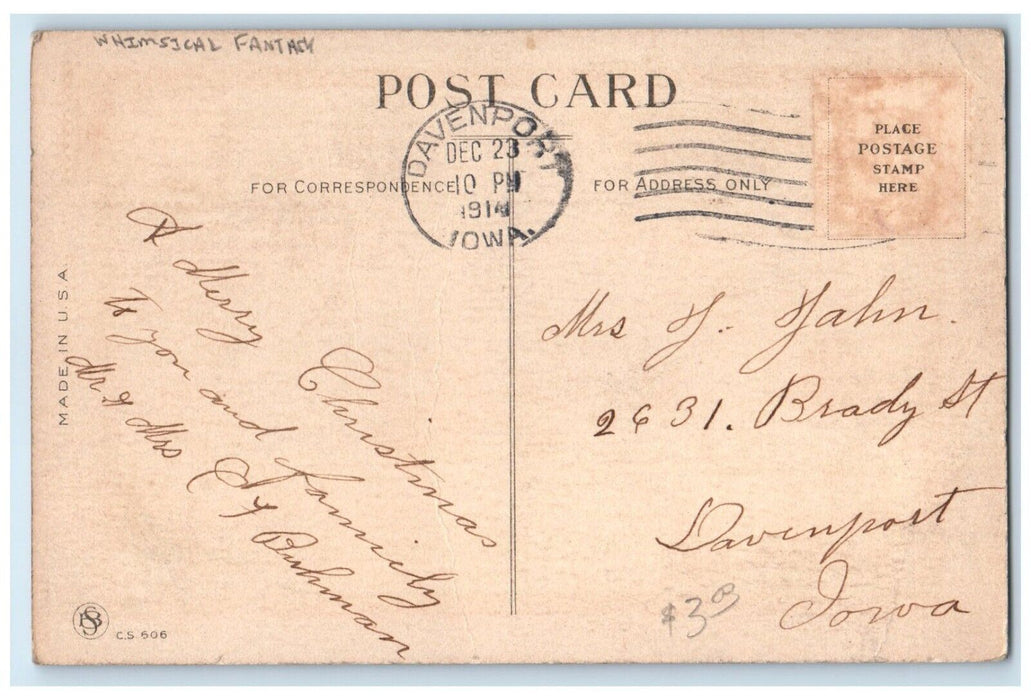 WHIMSICAL FANTASY
POST CARD
DAVENPORT
DEC 23
10 PM
1914
IOWA.
FOR CORRESPONDENCE
FOR ADDRESS ONLY
PLACE
POSTAGE
STAMP
HERE
A Merry Christmas
To you and family
Mr & Mrs
Buhman
Mrs J. Jahn.
2631. Brady St
Davenport
Iowa
$3.00
MADE IN U.S.A.
C.S. 606